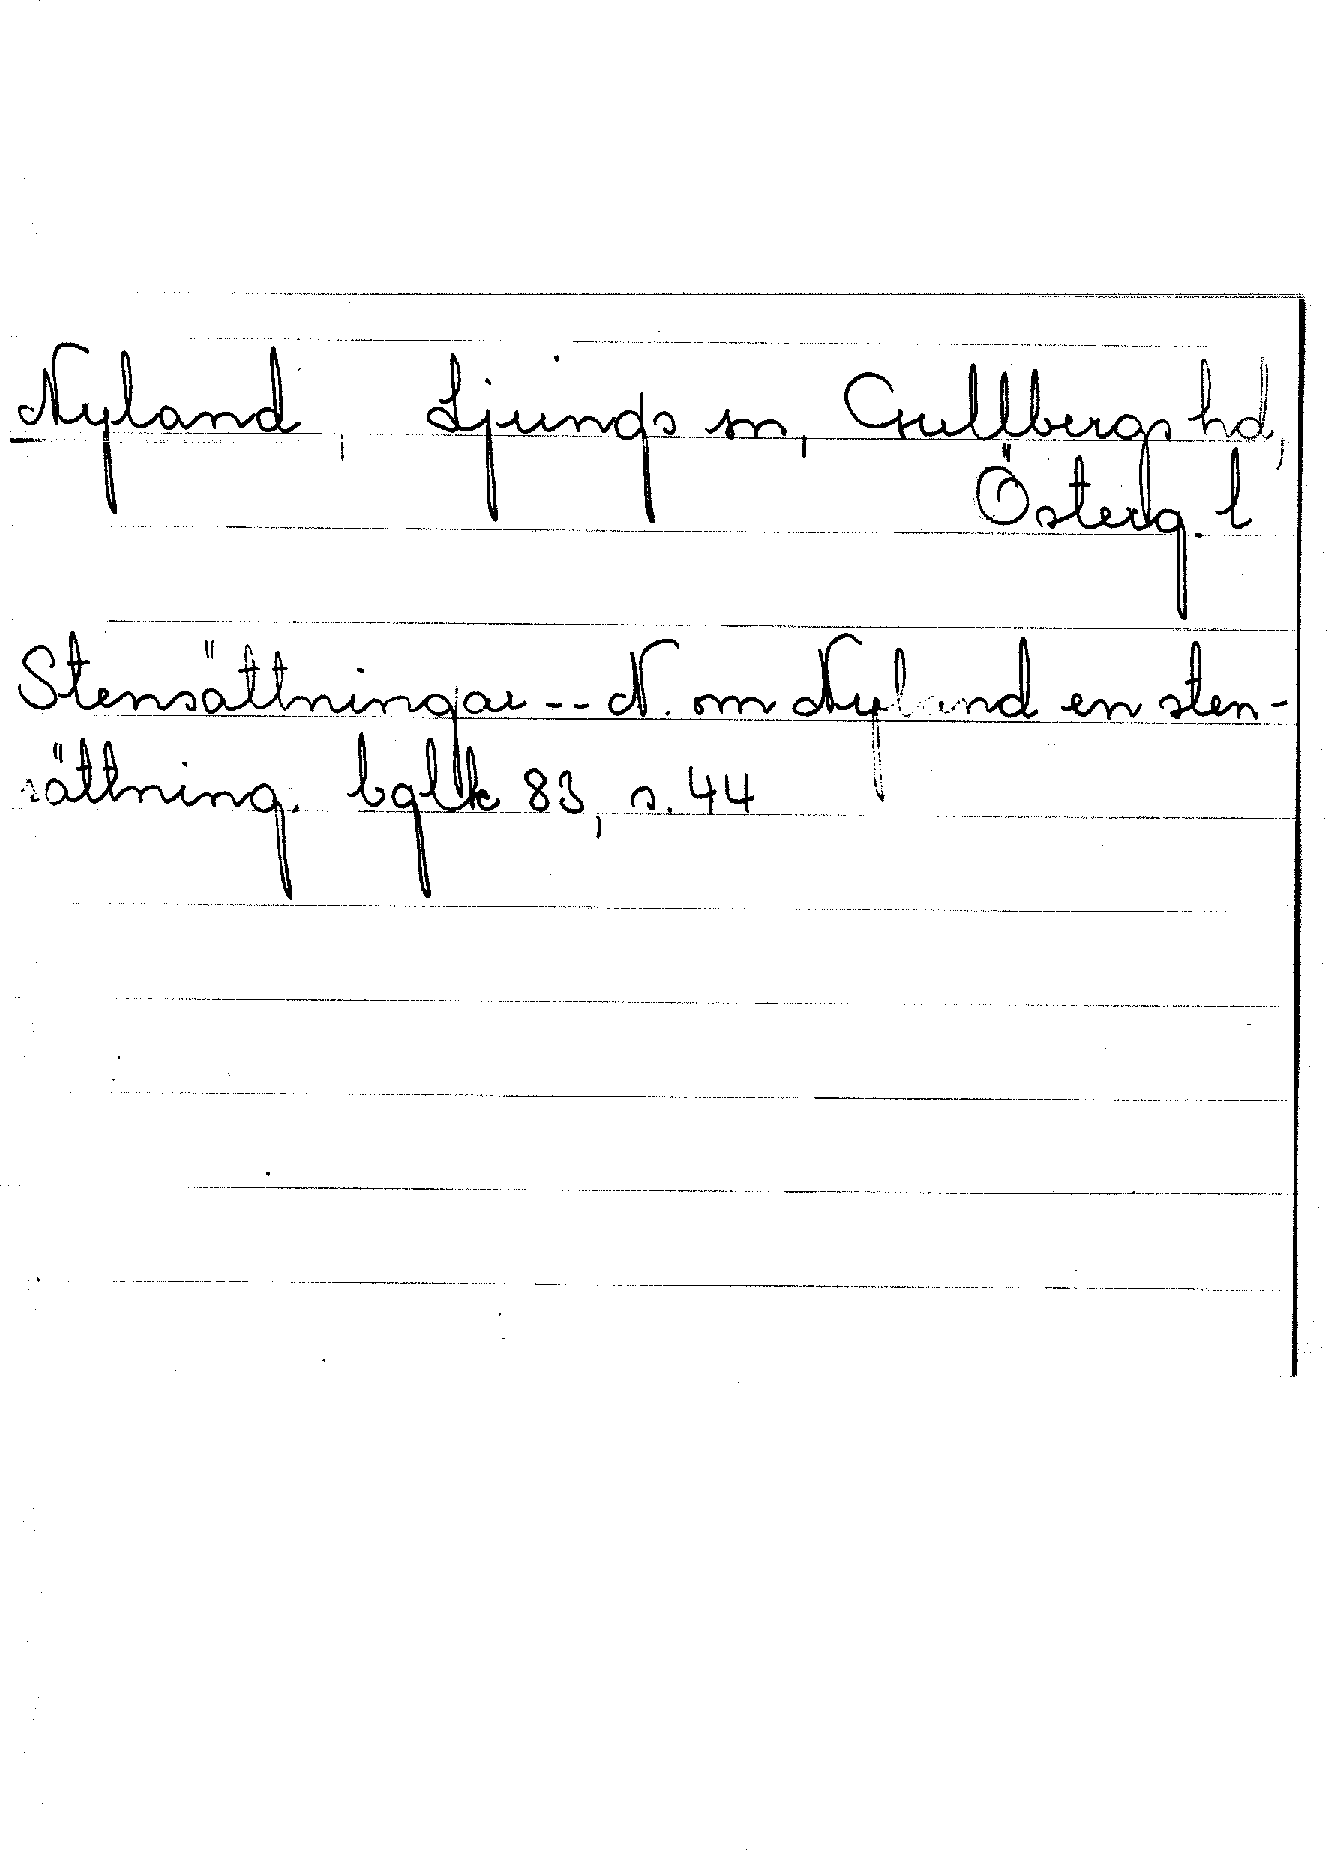 Nyland, Ljungs sn, Gullbergs hd,
Österg. l
Stensättningar -- N. om Nyland en sten-
sättning. bglk 83, s. 44